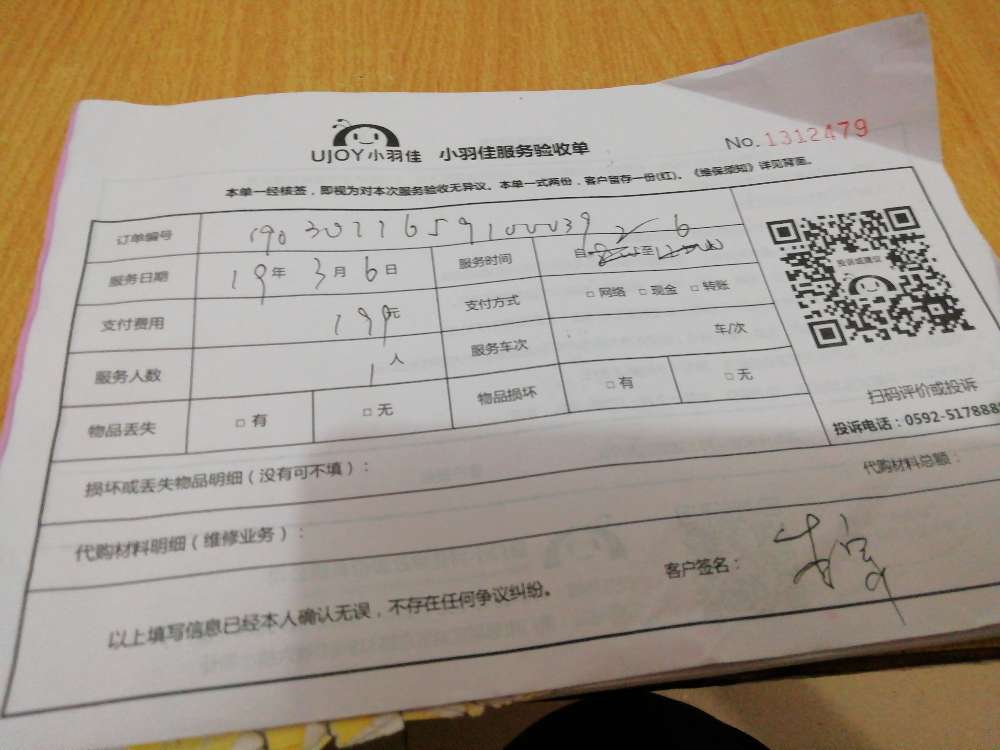 UJOY小羽佳 小羽佳服务验收单 No.1312479
本单一经核签，即视为对本次服务验收无异议。本单一式两份，客户留存一份(红)。《维保须知》详见背面。
订单编号
服务日期 19年3月6日 服务时间 自 至
支付费用 199元 支付方式 □网络 □现金 □转账
服务人数 1人 服务车次 车/次
物品丢失 □有 □无 物品损坏 □有 □无
投诉或建议
扫码评价或投诉
投诉电话：0592-517888
损坏或丢失物品明细（没有可不填）：
代购材料明细（维修业务）： 代购材料总额：
以上填写信息已经本人确认无误，不存在任何争议纠纷。 客户签名：